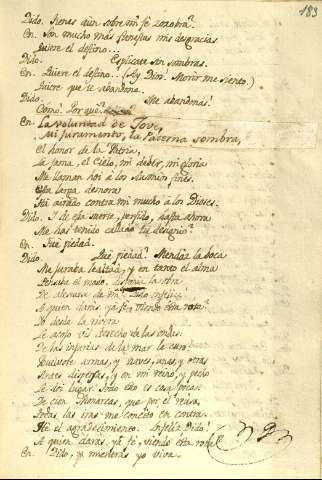 183
Dido. Tienes aun sobre mi fe zozobra?
En. Son mucho mas funestas mis desgracias
Quiere el destino...
Dido. Explicate sin sombras.
En. Quiere el destino... (Ay Dios! Morir me siento.)
Quiere que te abandone.
Dido. Me abandonas!
Como? Por què?
En. La voluntad de Jove,
Mi juramento, la Paterna sombra,
El honor de la Patria,
La fama, el Cielo, mi deber, mi gloria
Me llaman hoi à los fines.
Esta larga demora
Ha airado contra mi mucho à los Dioses.
Dido. Y de esa suerte, perfido, hasta ahora
Me has tenido callado tu designio?
En. Fue piedad.
Dido. Què piedad? Mendàz la boca
Me juraba lealtad, y en tanto el alma
la obra
De de mi?
A quien daràs ya fe, viendo esta
Yo desde la rivera
Le acojo vil derecho de las ondas
De las injurias de la mar le curo:
armas, y naves, unas y otras
Antes dispersas, y en mi reino, y pecho
Le doi lugar. Todo esto es cosa poca:
De cien Monarcas, que por el
Todas las iras me concito en contra.
He el agradecimiento. Infeliz Dido!
A quien daràs, ya fe, viendo esta
En. Dido, ya mientras yo viva